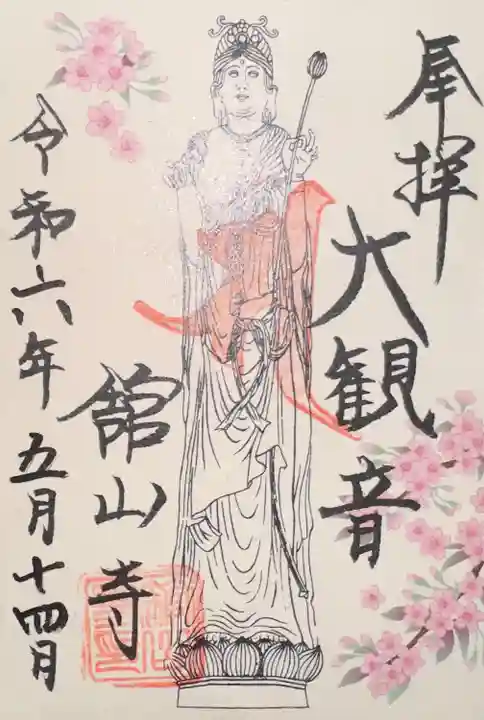 奉拝
大観音
舘山寺
令和六年五月十四日